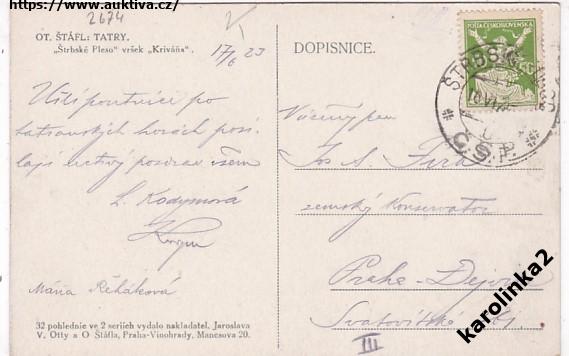 https://www.auktiva.cz/
2674
OT. ŠTÁFL: TATRY.
„Štrbské Pleso" vršek „Kriváňa".
17/6 23
DOPISNICE.
POŠTA ČESKOSLOVENSKÁ
ŠTRBSKÉ
Č.S.P.
Ušlí poutníce po
tatranských horách posí-
lají uctivý pozdrav všem
L. Kodymová
Maria Řeháková
Vážený pan
Jos A. Jíra
zemský Konservator
Praha-Dejvice
Svatovítská
III
32 pohlednie ve 2 seriích vydalo nakladatel. Jaroslava
V. Otty a O Štáfla, Praha-Vinohrady, Mánesova 20.
karolinka2